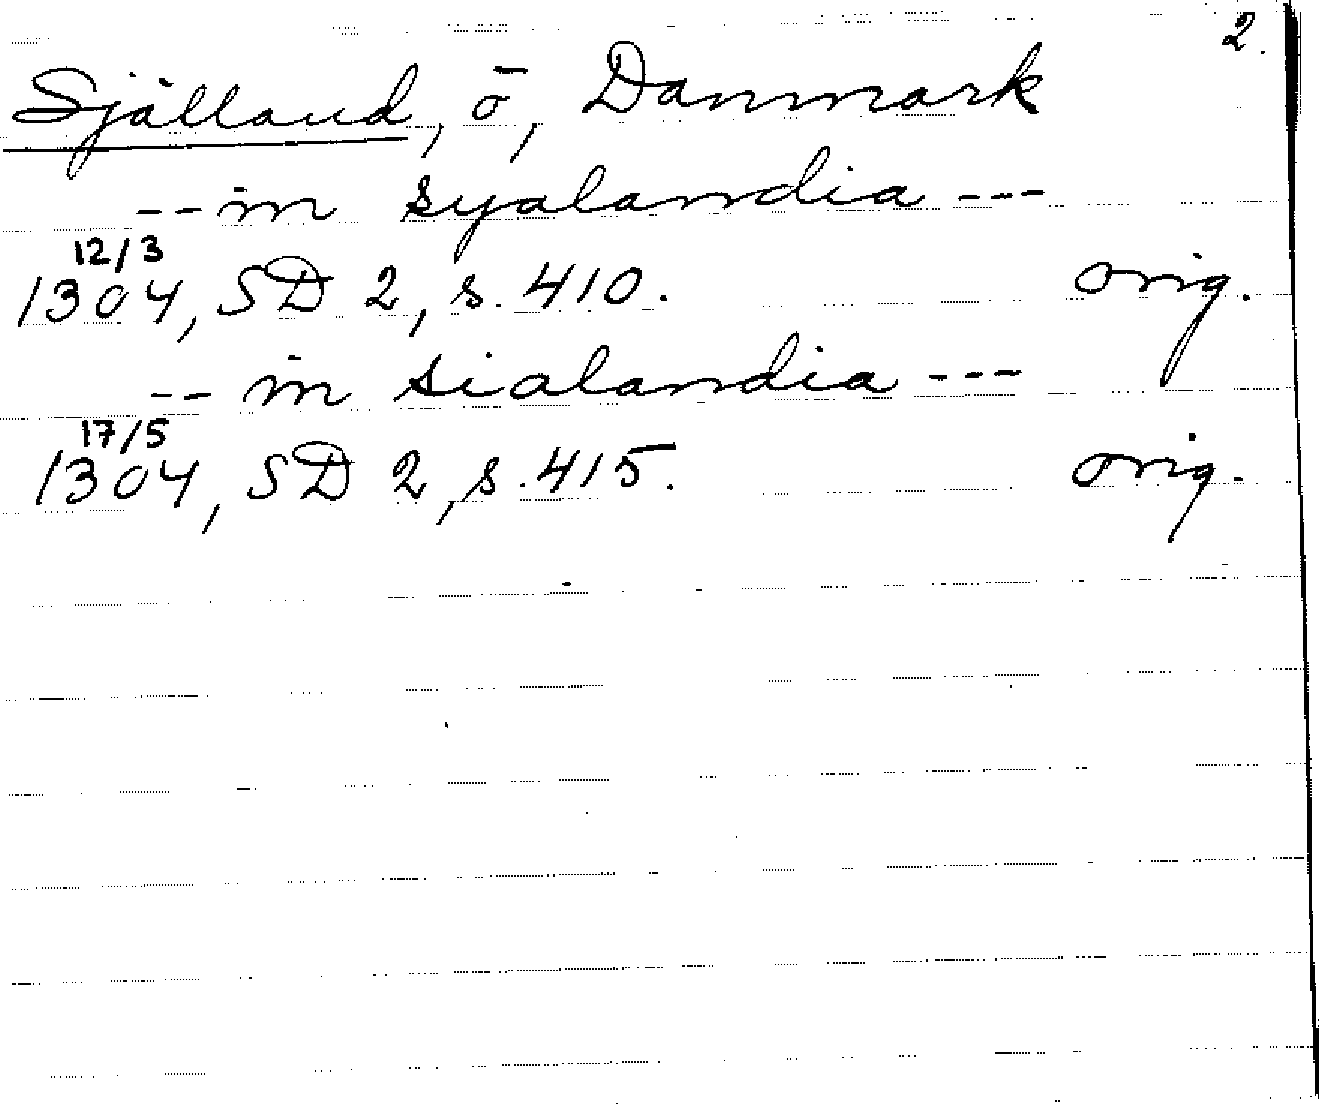 2.
Själland, ö, Danmark
-- in syalandia ---
12/3
1304, SD 2, s. 410. orig.
-- in sialandia ---
17/5
1304, SD 2, s. 415. orig.